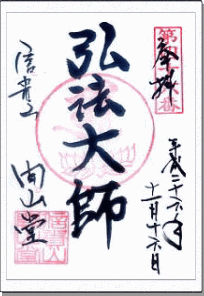 奉拝
平成二十六年
十一月十六日
弘法大師
信貴山
開山堂